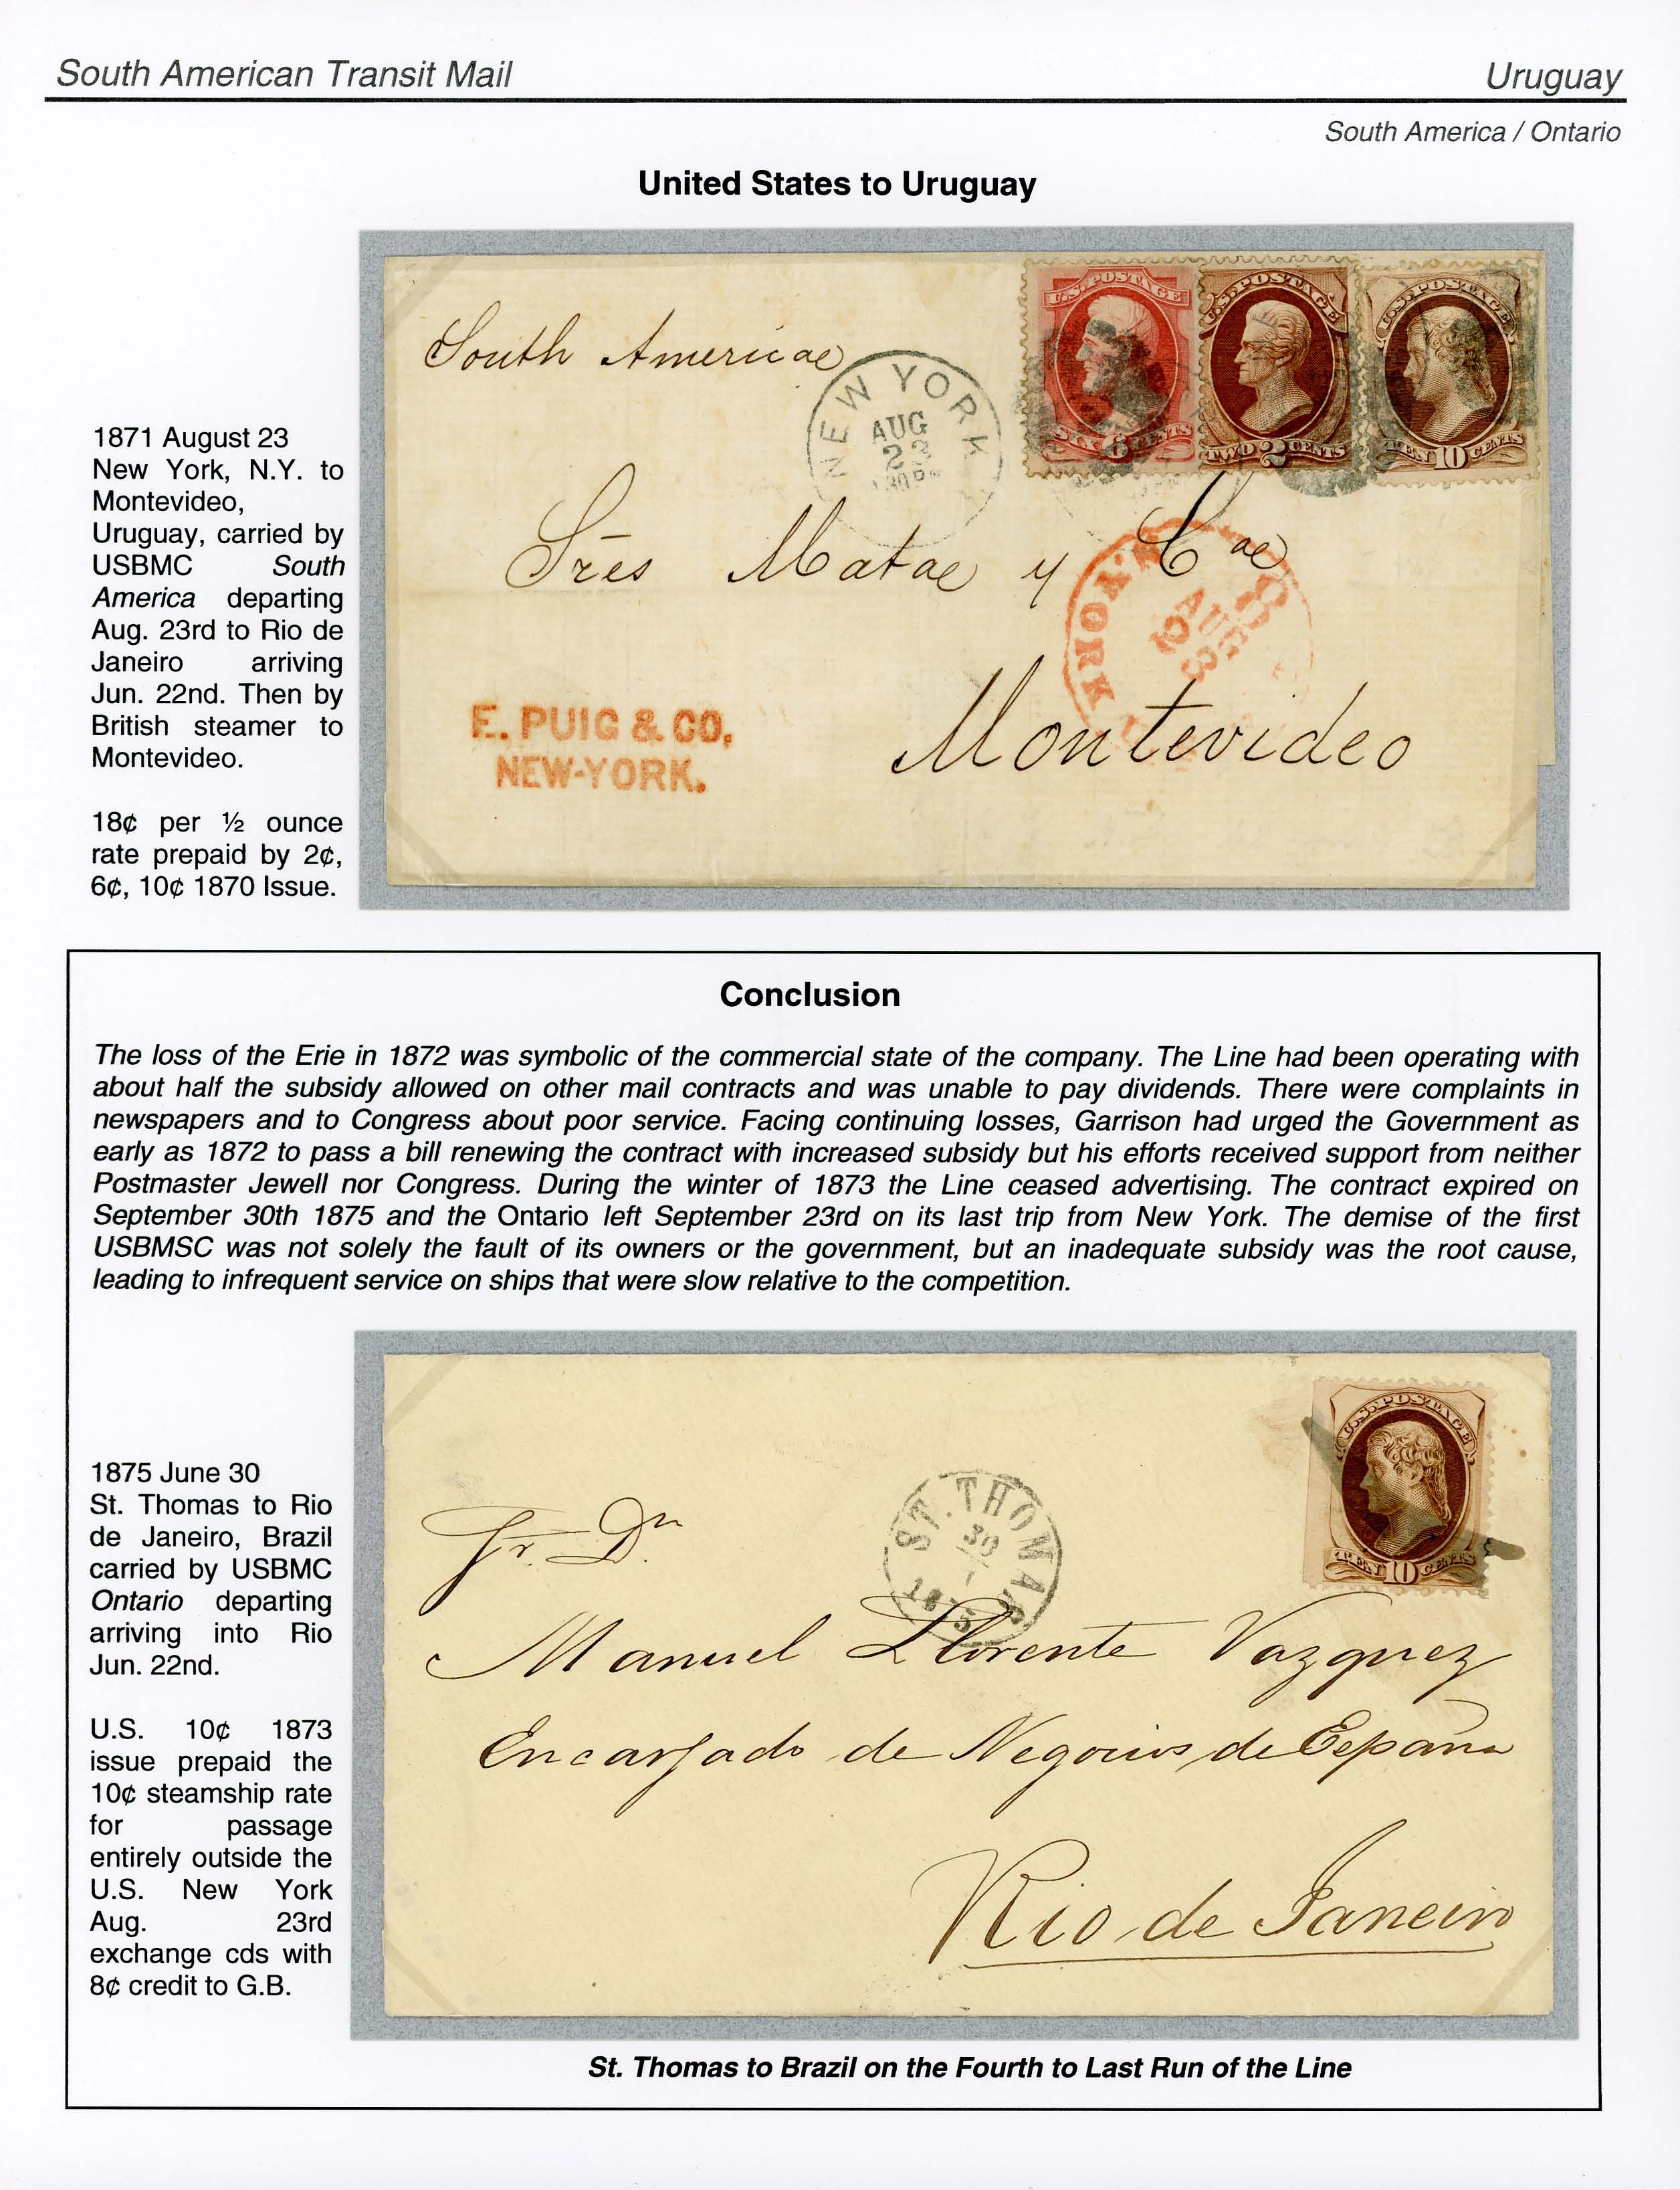 South American Transit Mail
Uruguay
South America / Ontario
United States to Uruguay
1871 August 23
New York, N.Y. to
Montevideo,
Uruguay, carried by
USBMC South
America departing
Aug. 23rd to Rio de
Janeiro arriving
Jun. 22nd. Then by
British steamer to
Montevideo.
18¢ per ½ ounce
rate prepaid by 2¢,
6¢, 10¢ 1870 Issue.
South America
NEW YORK
AUG
23
U.S. POSTAGE
SIX 6 CENTS
U.S. POSTAGE
TWO 2 CENTS
U.S. POSTAGE
TEN 10 CENTS
Sres Mata y Ca
YORK
8
AUG
23
E. PUIG & CO.
NEW-YORK.
Montevideo
Conclusion
The loss of the Erie in 1872 was symbolic of the commercial state of the company. The Line had been operating with
about half the subsidy allowed on other mail contracts and was unable to pay dividends. There were complaints in
newspapers and to Congress about poor service. Facing continuing losses, Garrison had urged the Government as
early as 1872 to pass a bill renewing the contract with increased subsidy but his efforts received support from neither
Postmaster Jewell nor Congress. During the winter of 1873 the Line ceased advertising. The contract expired on
September 30th 1875 and the Ontario left September 23rd on its last trip from New York. The demise of the first
USBMSC was not solely the fault of its owners or the government, but an inadequate subsidy was the root cause,
leading to infrequent service on ships that were slow relative to the competition.
1875 June 30
St. Thomas to Rio
de Janeiro, Brazil
carried by USBMC
Ontario departing
arriving into Rio
Jun. 22nd.
U.S. 10¢ 1873
issue prepaid the
10¢ steamship rate
for passage
entirely outside the
U.S. New York
Aug. 23rd
exchange cds with
8¢ credit to G.B.
U.S. POSTAGE
TEN 10 CENTS
ST. THOMAS
30
1875
Sr. Dn
Manuel Llorente Vazquez
Encargado de Negocios de España
Rio de Janeiro
St. Thomas to Brazil on the Fourth to Last Run of the Line